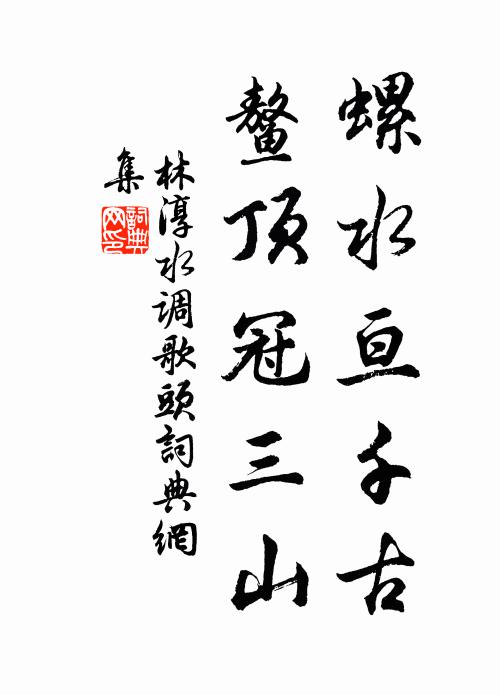 螺水亘千古
鳌顶冠三山
林淳水调歌頭詞典網
集
詞典
网印